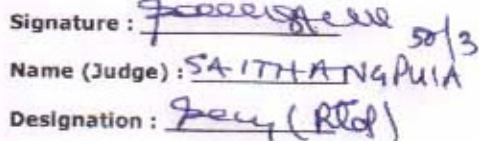 Signature :
50/3
Name (Judge) : SAITHANGPUIA
Designation : Secy (Rtd)